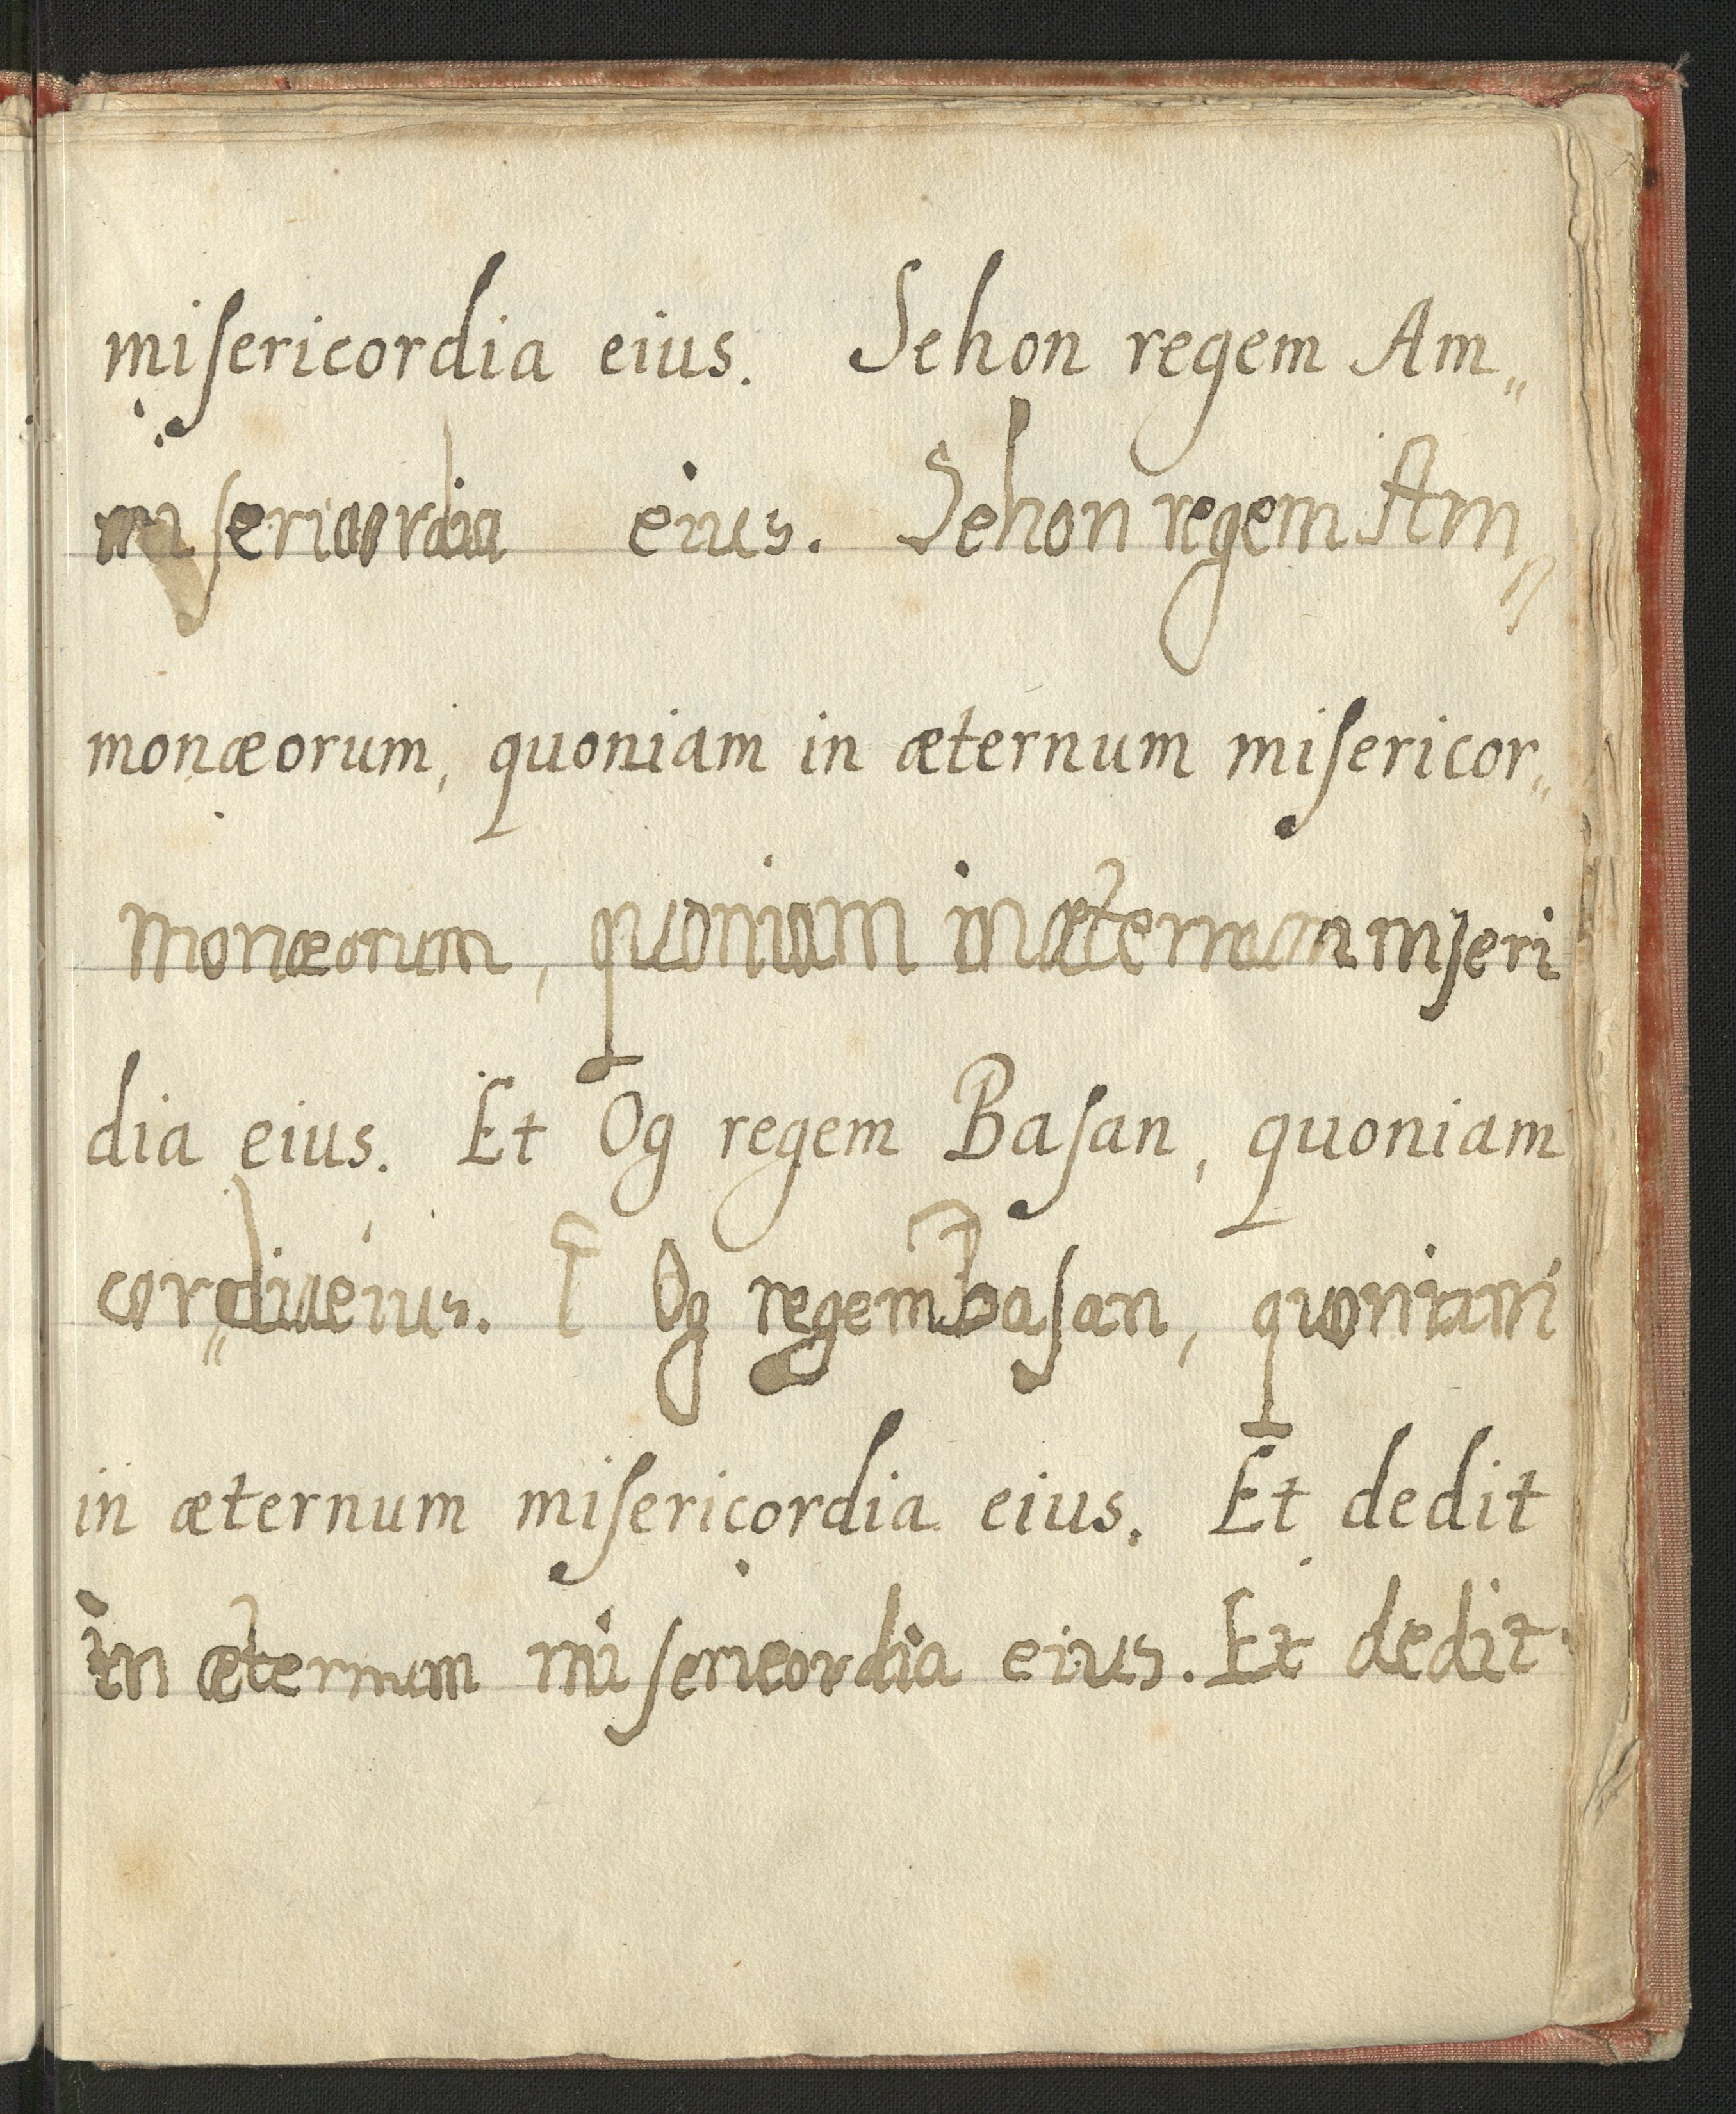 miſericordia eius. Sehon regem Am„
mi ſericordia eius. Sehon regem Am„
monæorum, quoniam in æternum miſericor„
monæorum, quoniam in æternum mſeri
dia eius. Et Og regem Baſan, quoniam
cor„dia eius. E Og regem Baſan, quoniam
in æternum miſericordia eius. Et dedit
in æternum mi ſericordia eius. Et dedit